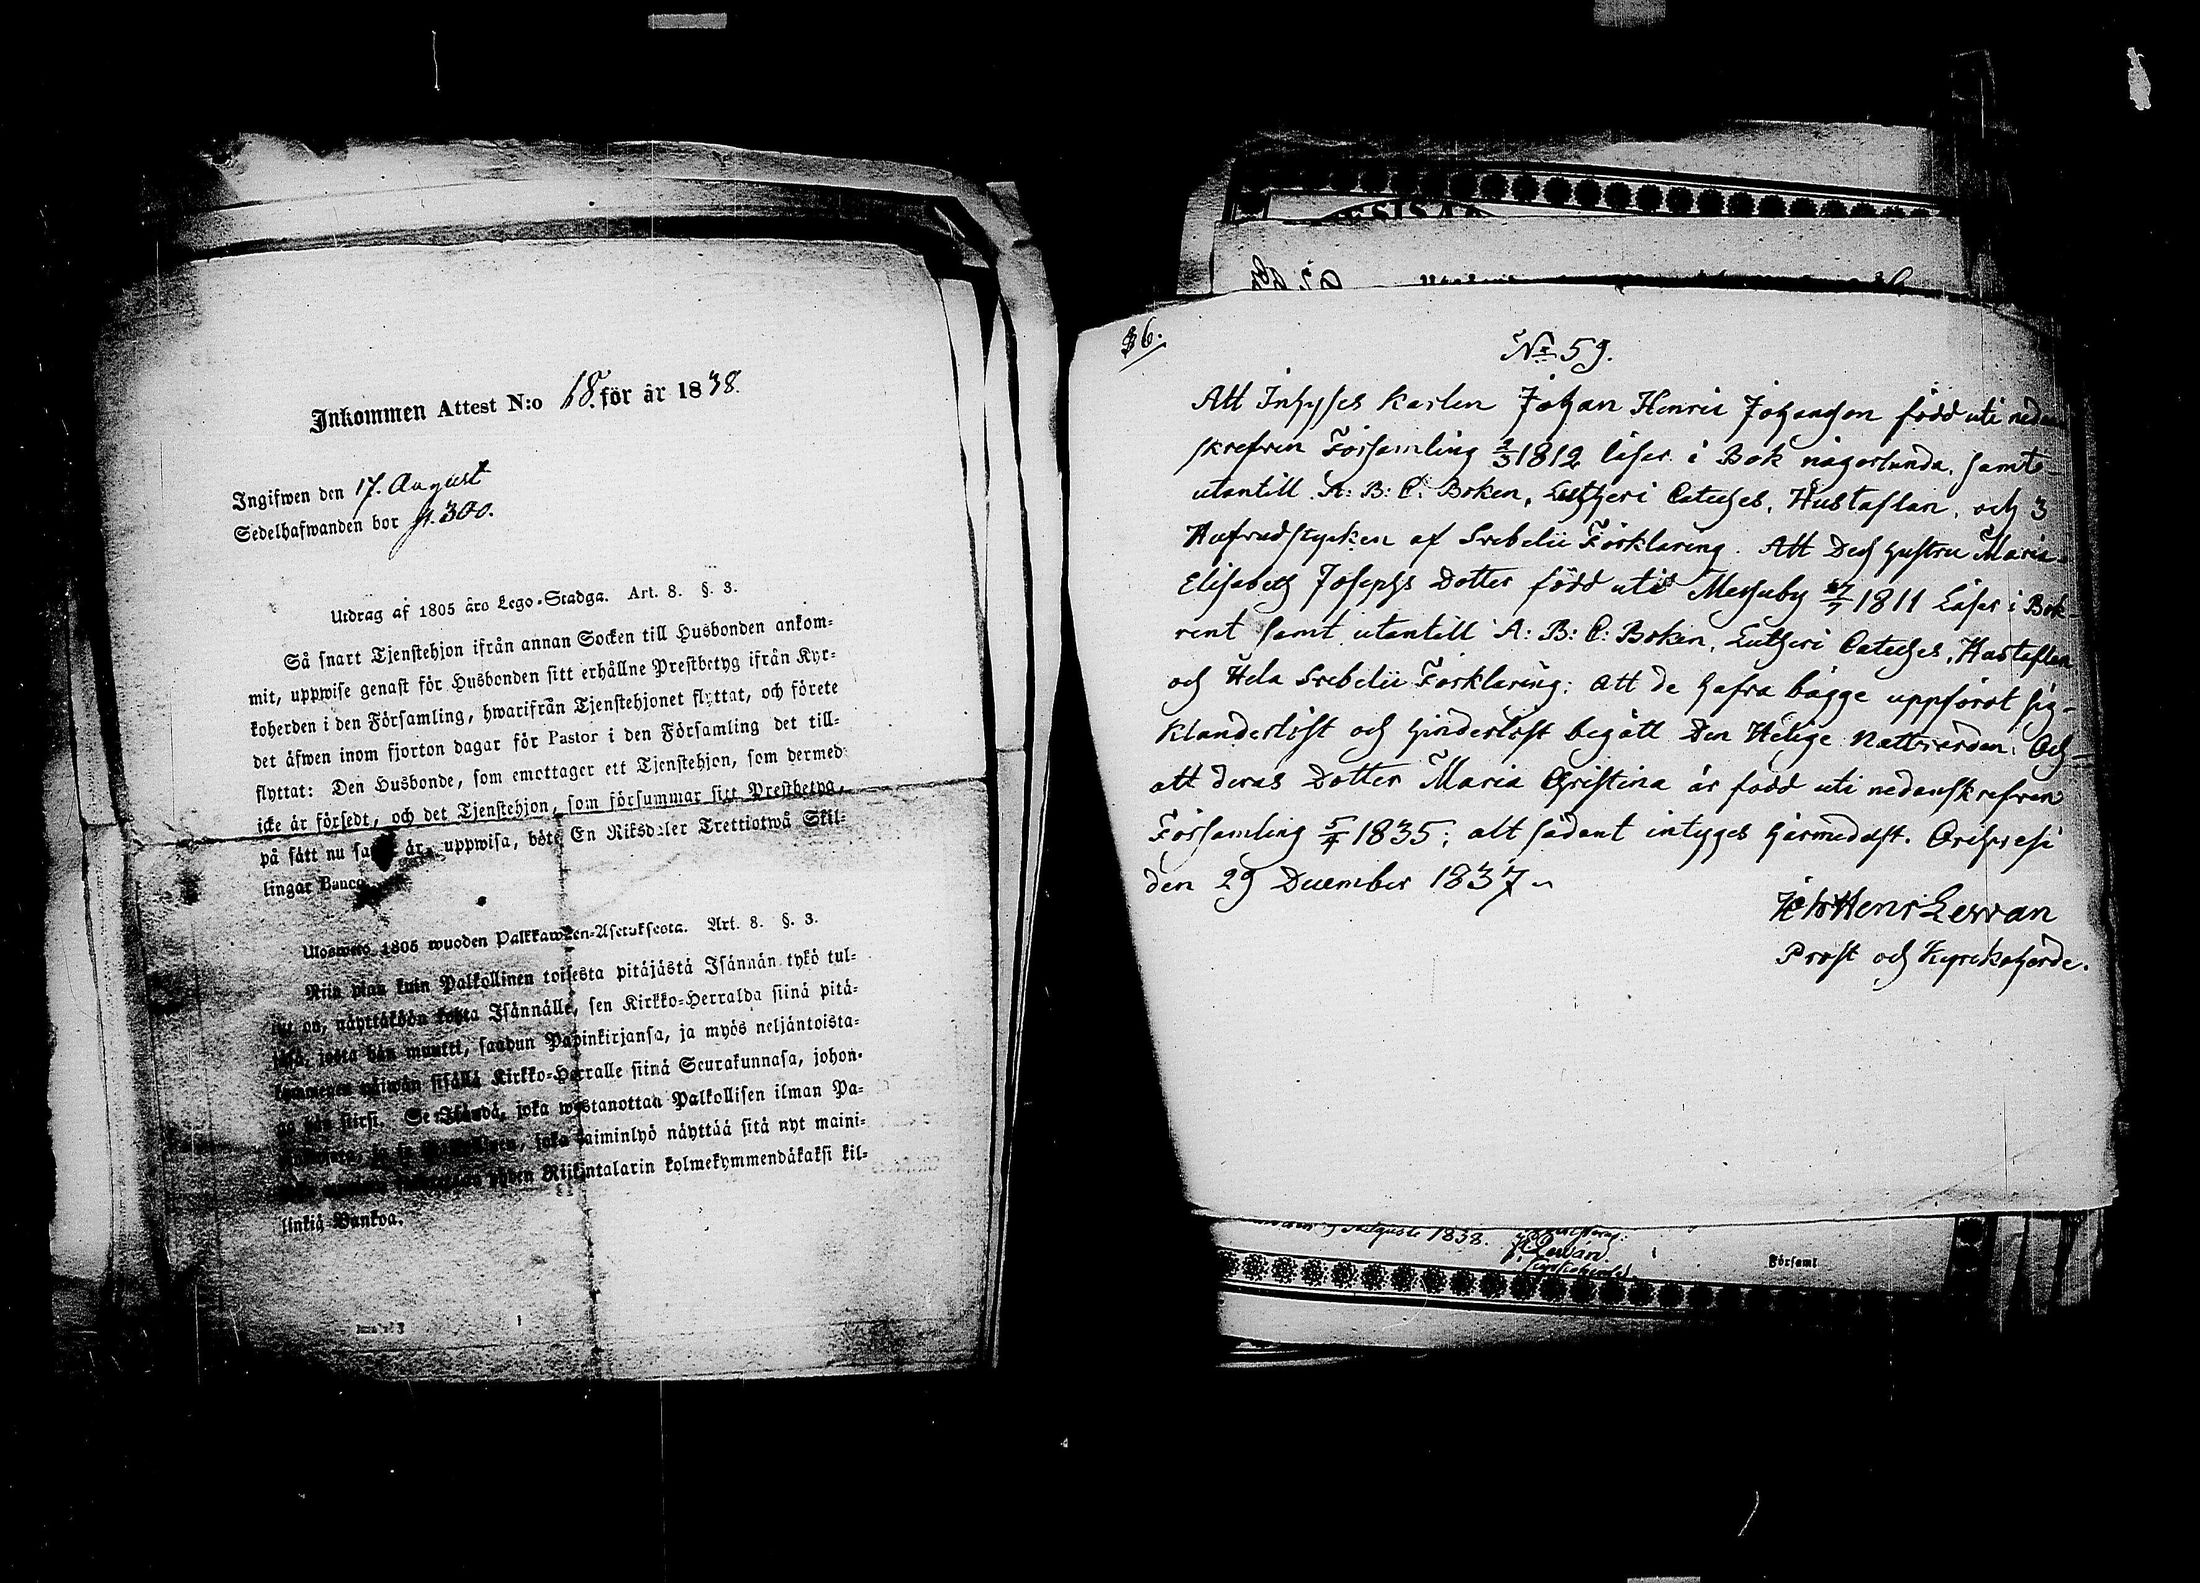 Inkommen Attest N:o 18. för år 1838.
Ingifwen den 17. August
Sedelhafwanden bor p. 300.
Utdrag af 1805 års Lego-Stadga. Art. 8. §. 3.
Så snart Tjenstehjon ifrån annan Socken till Husbonden ankom-
mit, uppwise genast för Husbonden sitt erhållne Prestbetyg ifrån Kyr-
koherden i den Församling, hwarifrån Tjenstehjonet flyttat, och förete
det äfwen inom fjorton dagar för Pastor i den Församling det till-
flyttat: Den Husbonde, som emottager ett Tjenstehjon, som dermed
icke är försedt, och det Tjenstehjon, som försummar sitt Prestbetyg,
på sätt nu är, uppwisa, böte En Riksdaler Trettiotwå Skil-
lingar Banco.
Ulosweto 1805 wuoden Palkkawäen-Asetuksesta. Art. 8. §. 3.
Niin pian kuin Palkollinen toisesta pitäjästä Isännän tykö tul-
lut on, näyttäköön kohta Isännälle, sen Kirkko-Herralda siinä pitä-
jäsä, josta hän muutti, saadun Papinkirjansa, ja myös neljäntoista-
kymmenen päiwän sisällä Kirkko-Herralle siinä Seurakunnasa, johon-
ga hän siirsi. Se Isändä, joka wastanottaa Palkollisen ilman Pa-
joka laiminlyö näyttää sitä nyt maini-
yhden Riikintalarin kolmekymmendäkaksi kil-
linkiä Bankoa.
36.
No 59.
Att Inhyses Karlen Johan Henric Johansson född uti nedan
skrefven Församling 2/3 1812 läser i Bok någorlunda, samt
utantill A: B: C: Boken, Lutheri Cateches, Hustaflan, och 3
Hufvudstycken af Svebelii Förklaring. Att Dess hustru Maria
Elisabeth Josephs Dotter född uti Messuby 27/7 1811 Läser i Bok
rent samt utantill A: B: C: Boken, Lutheri Cateches, Hustaflan
och Hela Svebelii Förklaring: att de hafva bägge uppfört sig
klanderlöst och hinderlöst begått Den Helige Nattvarden. Och
att deras Dotter Maria Christina är född uti nedanskrefven
Församling 5/4 1835; alt sådant intygges härmedelst. Orihvesi
den 29 December 1837.
Joh Henr Levan
Prost och Kyrckoherde.
Auguste 1838.
Levan
Församl